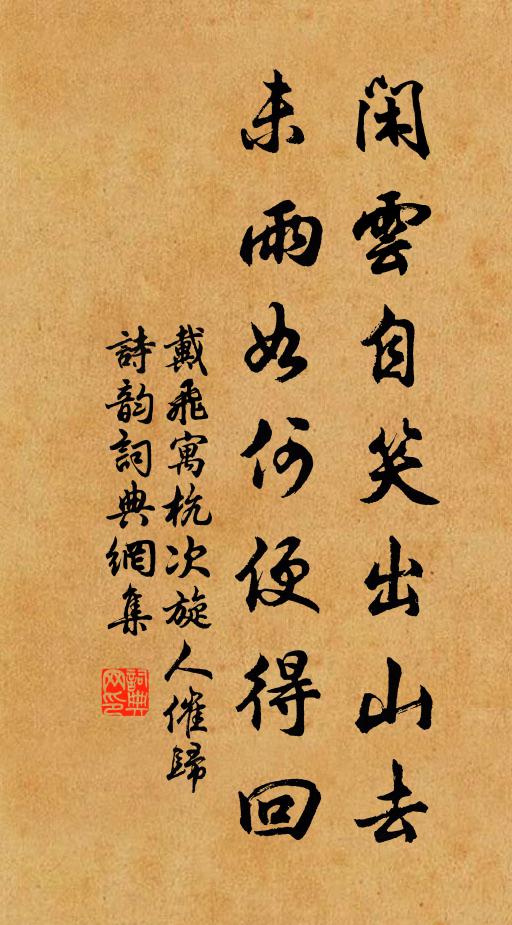 閑雲自笑出山去
未雨如何便得回
戴飛寓杭次旋人催歸
詩韵詞典網集
詞典网印